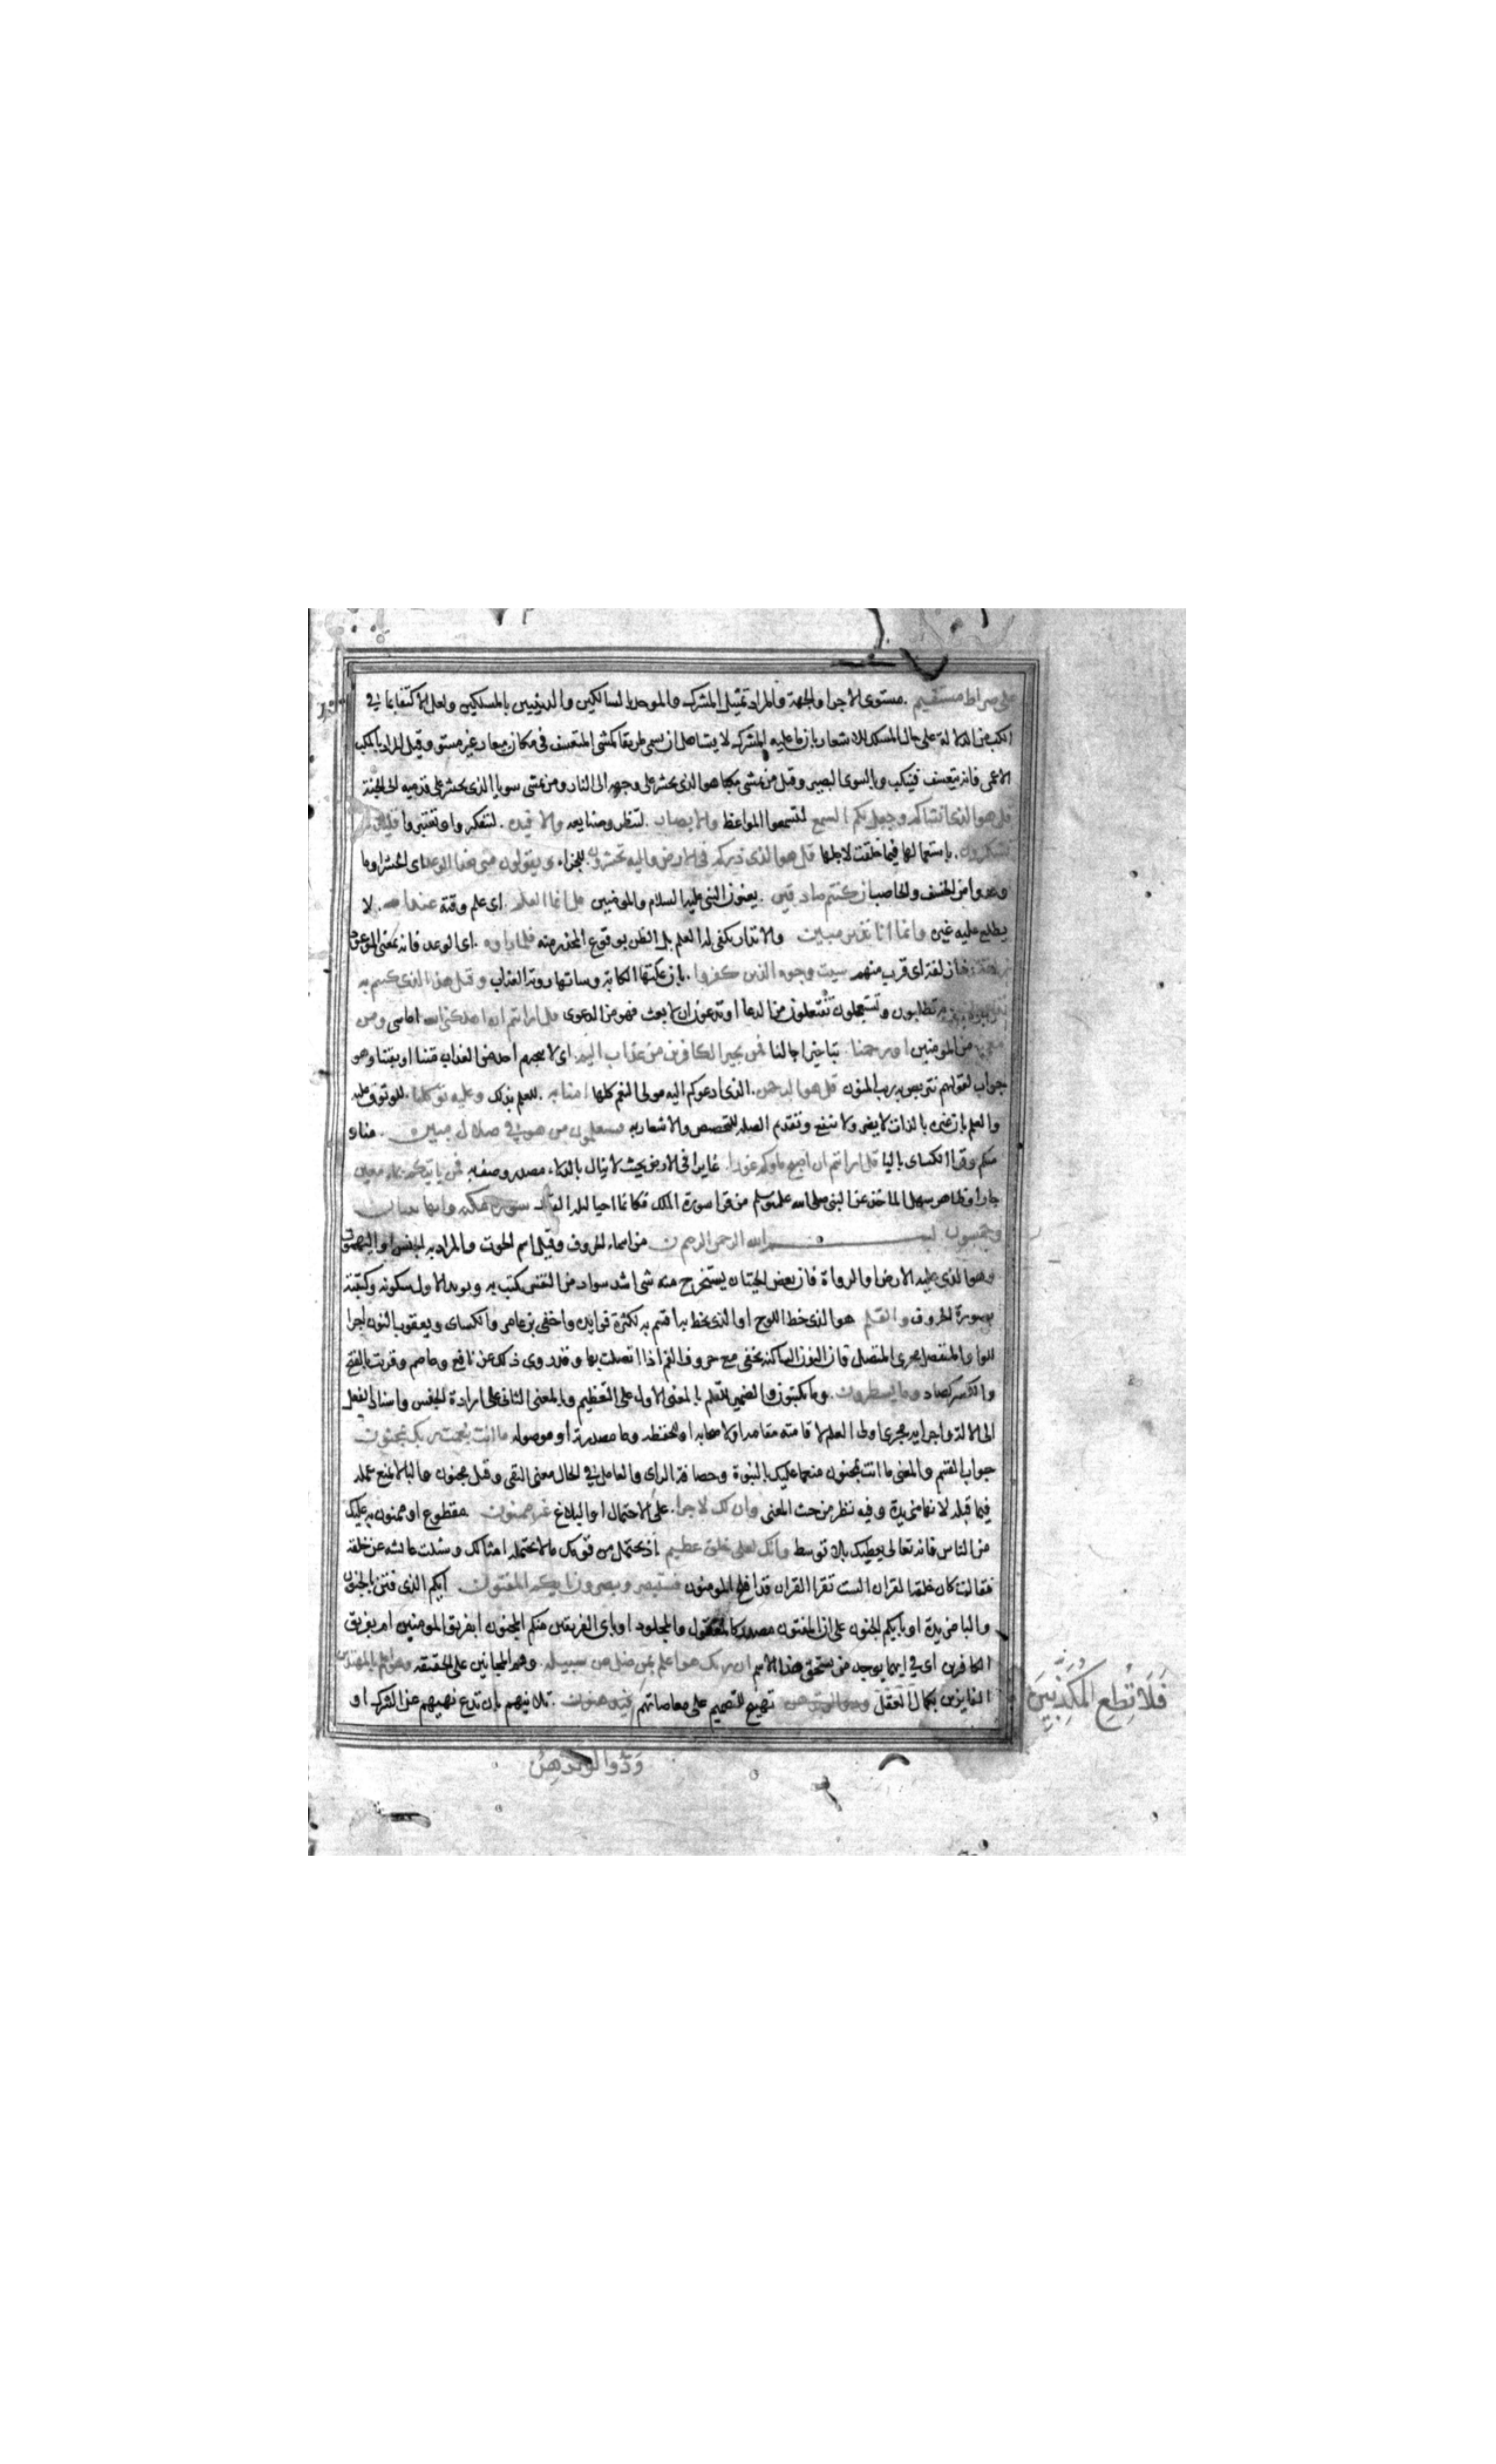 على صراط مستقيم . مستوى الاجزا والجهة والمراد تمثيل المشرك والموحد بالسالكين والدينين بالمسلكين ولعل الاكتفا بما في
الكب من الدلالة على حال المسلك للاشعار بان ما عليه المشرك لا يستاهل ان يسمى طريقا كمشى المتعسف في مكان متعاد غير مستو وقيل المراد بالمكب
الاعمى فانه يتعسف فينكب وبالسوى البصير وقيل من يمشى مكبا هو الذي يحشر على وجهه الى النار ومن يمشى سويا الذي يحشر على قدميه الى الجنة
قل هو الذي انشاكم وجعل لكم السمع لتسمعوا المواعظ والابصار . لتنظروا صنايعه والافيدة . لتتفكروا وتعتبروا قليلا ما
تشكرون . باستعمالها فيما خلقت لاجلها قل هو الذي ذراكم في الارض واليه تحشرون للجزاء ويقولون متى هذا الوعد اى الحشر او ما
وعدوا من الخسف والحاصب ان كنتم صادقين . يعنون النبي عليه السلام والمومنين قل انما العلم اى علم وقته عند الله . لا
يطلع عليه غيره وانما انا نذير مبين والانذار يكفى له العلم بل الظن بوقوع المحذر منه فلما راوه . اى الوعد فانه بمعنى الموعود
زلفة ذا زلفة اى قرب منهم سيئت وجوه الذين كفروا . بان علتها الكابة وساتها روية العذاب وقيل هذا الذي كنتم به
تدعون تطلبون وتستعجلون تفتعلون من الدعا او تدعون ان لا بعث فهو من الدعوى قل ارايتم ان اهلكنى الله اماتنى ومن
معى من المومنين او رحمنا بتاخير اجالنا فمن يجير الكافرين من عذاب اليم . اى لا ينجيهم احد من العذاب متنا او بقينا وهو
جواب لقولهم نتربص به ريب المنون قل هو الرحمن . الذي ادعوكم اليه مولى النعم كلها امنا به . للعلم بذلك وعليه توكلنا . للوثوق عليه
والعلم بان غيره بالذات لا يضر ولا ينفع وتقديم الصلة للتخصيص والاشعار به فستعلمون من هو في ضلال مبين . منا و
منكم وقرا الكساى باليا قل ارايتم ان اصبح ماوكم غورا . غايرا في الارض بحيث لا ينال بالدلاء مصدر وصف به فمن ياتيكم بماء معين
جار او ظاهر سهل الماخذ عن النبي صلى الله عليه وسلم من قرا سورة الملك فكانما احيا ليلة القدر سورة ن مكية وايها ثنتان
وخمسون بسم الله الرحمن الرحيم ن من اسماء الحروف وقيل اسم الحوت والمراد به الجنس او اليهموت
وهو الذي عليه الارض او الدواة فان بعض الحيتان يستخرج منه شى اشد سواد من النقس يكتب به ويويد الاول سكونه وكتبته
بصورة الحروف والقلم هو الذي خط اللوح او الذي يخط به اقسم به لكثرة فوايده واخفى ابن عامر والكساى ويعقوب النون اجرا
للواو المنفصل مجرى المتصل فان النون الساكنة تخفى مع حروف الفم اذا اتصلت بها وقد روى ذلك عن نافع وعاصم وقريت بالفتح
والكسر كصاد وما يسطرون . وما يكتبون والضمير للقلم بالمعنى الاول على التعظيم وبالمعنى الثاني على ارادة الجنس واسناد الفعل
الى الالة واجرايه مجرى اولى العلم لاقامته مقامه او لاصحابه او للحفظة وما مصدرية او موصوله ما انت بنعمت ربك بمجنون
جواب القسم والمعنى ما انت بمجنون منعما عليك بالنبوة وحصافة الراى والعامل في الحال معنى النفى وقيل مجنون والبا لا تمنع عمله
فيما قبله لانها مزيدة وفيه نظر من حيث المعنى وان لك لاجرا . على الاحتمال او البلاغ غير ممنون مقطوع او ممنون به عليك
من الناس فانه تعالى يعطيك بلا توسط وانك لعلى خلق عظيم اذ تحتمل من قومك ما لا يحتمله امثالك وسئلت عائشه عن خلقه
فقالت كان خلقه القران الست تقرا القران قد افلح المومنون فستبصر ويبصرون بايكم المفتون ايكم الذي فتن بالجنون
والبا مزيدة او بايكم الجنون على ان المفتون مصدر كالمعقول والمجلود او باى الفريقين منكم المجنون ابفريق المومنين ام بفريق
الكافرين اى في ايهما يوجد من يستحق هذا الاسم ان ربك هو اعلم بمن ضل عن سبيله وهم المجانين على الحقيقه وهو اعلم بالمهتدين
الفايزين بكمال العقل ودوا لو تدهن تهييج للتصميم على معاصاتهم فيدهنون . تلاينهم بان تدع نهيهم عن الشرك او
فَلَا تُطِعِ الْمُكَذِّبِينَ
وَدُّوا لَوْ تُدْهِنُ